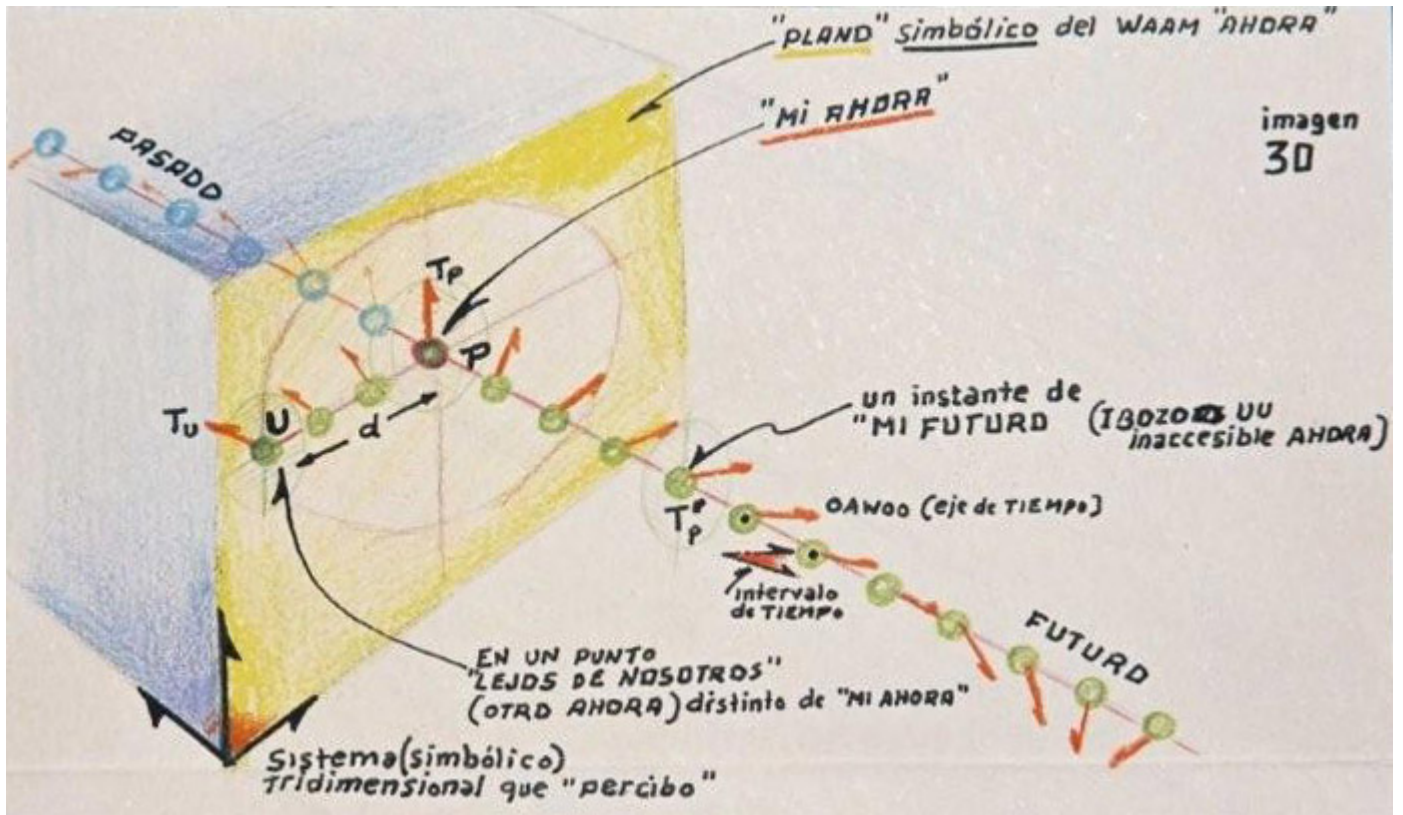 "PLANO" simbólico del WAAM "AHORA"
"Mi AHORA"
imagen
30
PASADO
Tp
P
U
Tu
d
un instante de
"MI FUTURO (IBOZOO UU
inaccesible AHORA)
T'p
OAWOO (eje de TIEMPO)
intervalo
de TIEMPO
FUTURO
EN UN PUNTO
"LEJOS DE NOSOTROS"
(OTRO AHORA) distinto de "MI AHORA"
Sistema (simbólico)
Tridimensional que "percibo"